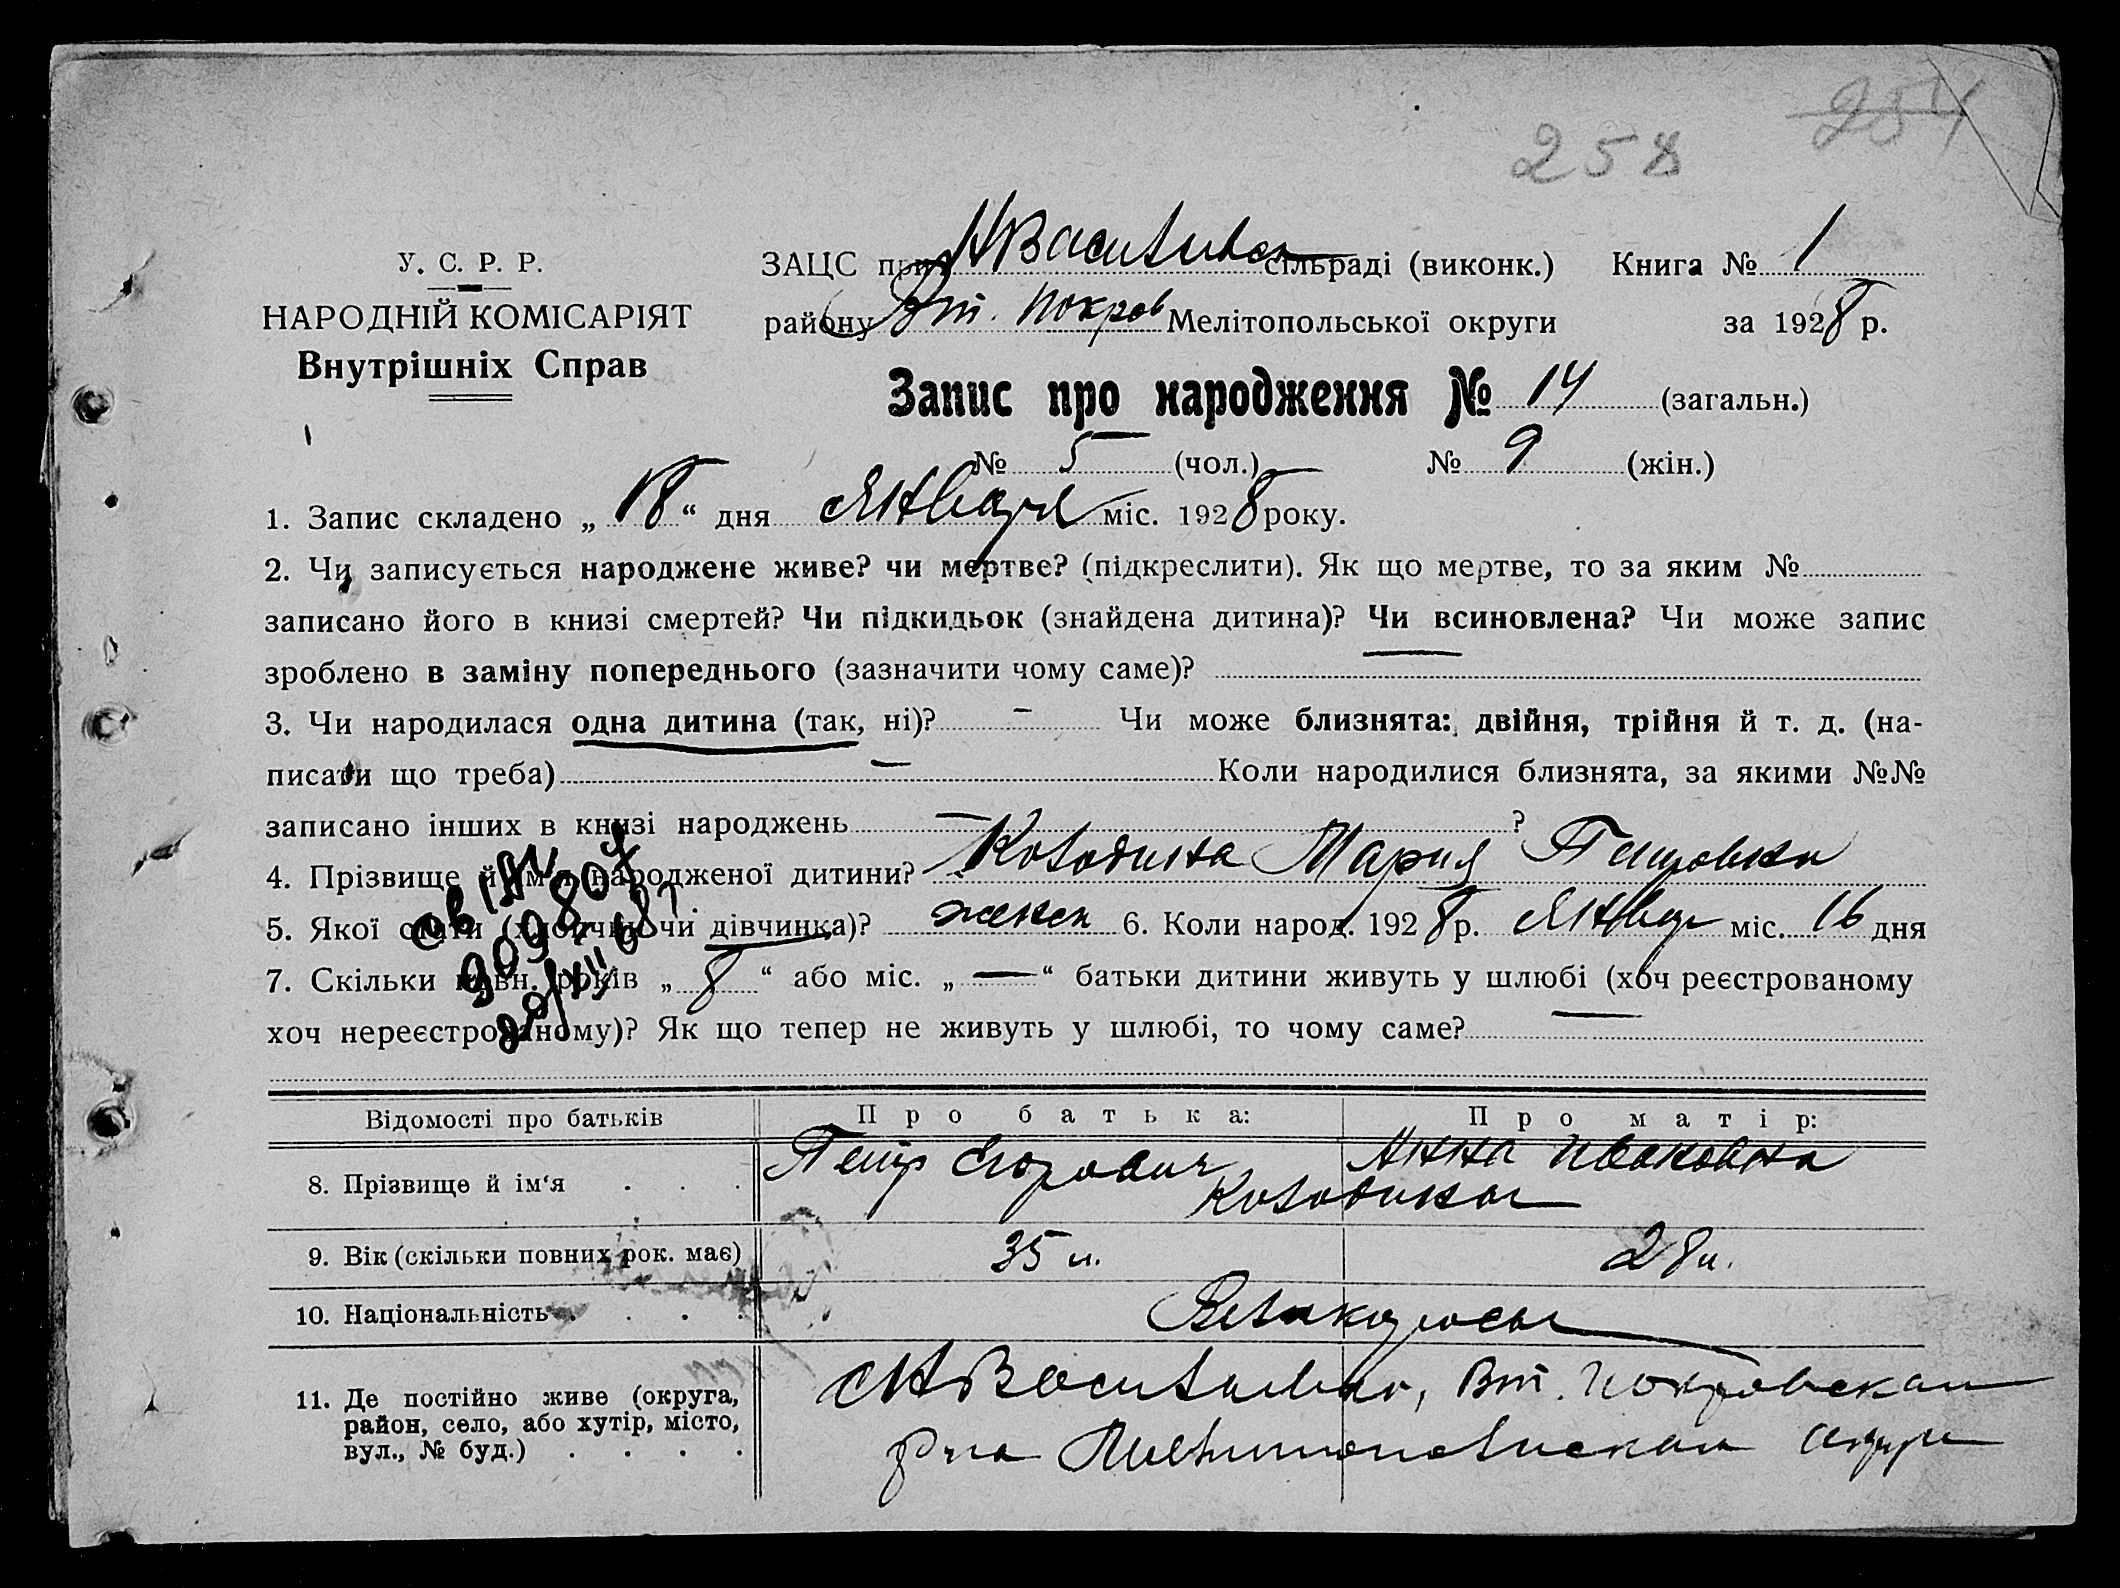 258 254
У. С. Р. Р.
НАРОДНІЙ КОМІСАРІЯТ
Внутрішніх Справ
ЗАЦС при НВасильевск сільраді (виконк.) Книга № 1
району Вт. Покров Мелітопольської округи за 1928 р.
Запис про народження № 14 (загальн.)
№ 5 (чол.) № 9 (жін.)
1. Запис складено „ 18 “ дня Января міс. 1928 року.
2. Чи записується народжене живе? чи мертве? (підкреслити). Як що мертве, то за яким №
записано його в книзі смертей? Чи підкидьок (знайдена дитина)? Чи всиновлена? Чи може запис
зроблено в заміну попереднього (зазначити чому саме)?
3. Чи народилася одна дитина (так, ні)? – Чи може близнята: двійня, трійня й т. д. (на-
писати що треба) — Коли народилися близнята, за якими №№
записано інших в книзі народжень — ?
4. Прізвище й ім'я народженої дитини? Колодина Мария Петровна
5. Якої статі (хлопчик чи дівчинка)? женск 6. Коли народ. 1928 р. Январ міс. 16 дня
7. Скільки повн. років „ 8 “ або міс. „ — “ батьки дитини живуть у шлюбі (хоч реєстрованому
хоч нереєстрованому)? Як що тепер не живуть у шлюбі, то чому саме? —
Відомості про батьків Про батька: Про матір:
8. Прізвище й ім‘я . . . Петр Егорович Анна Ивановна
Колодины
9. Вік (скільки повних рок. має) 35 л. 28 л.
10. Національність . . . . Великоросы
11. Де постійно живе (округа,
район, село, або хутір, місто,
вул., № буд.) . . . .
с НВасильевка, Вт. Покровскаго
р-на Мелитопольскаго округа